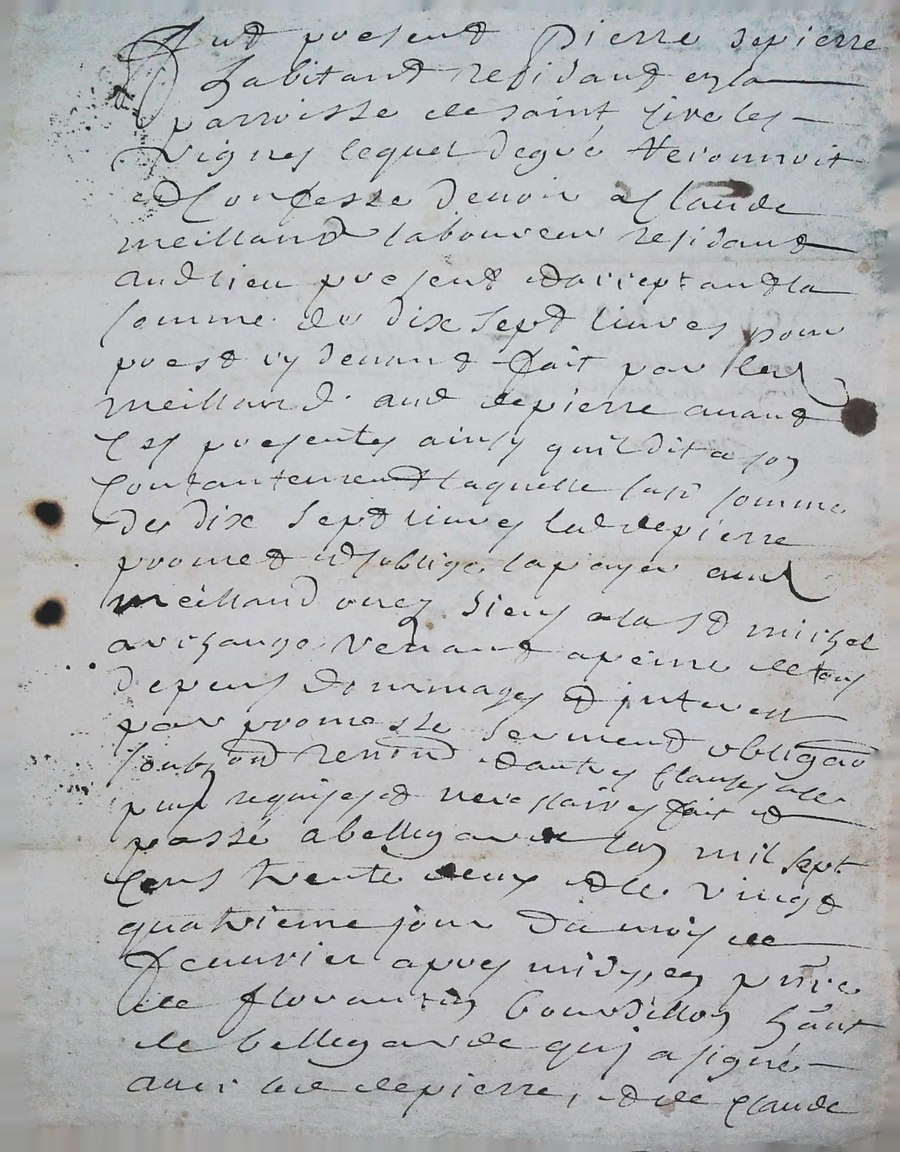 Fut present Pierre depierre
habitant residant en la
parroisse de saint Cire les
vignes lequel degré reconnoit
et Confesse devoir a Claude
meilland laboureur residant
aud lieu present et acceptant la
somme de dix sept livres pour
prest cy devant fait par led
meilland aud depierre avant
ces presentes ainsy quil dit a son
Contantement laquelle susd somme
de dix sept livres led depierre
promet et soblige la payer aud
meilland ou es siens a la st michel
archange venant a peine de tous
depens dommages et interest
par promesse serment obligaon
soub et renond et autres Clauses alle
puis requises et necessaires fait et
passé a bellegarde lan mil sept
Cens trente deux et le vingt
quatrieme jour du mois de
fevurier apres midy, en pnce
de florantin bourdillon hant
de bellegarde quj a signé
avec led depierre, et de Claude